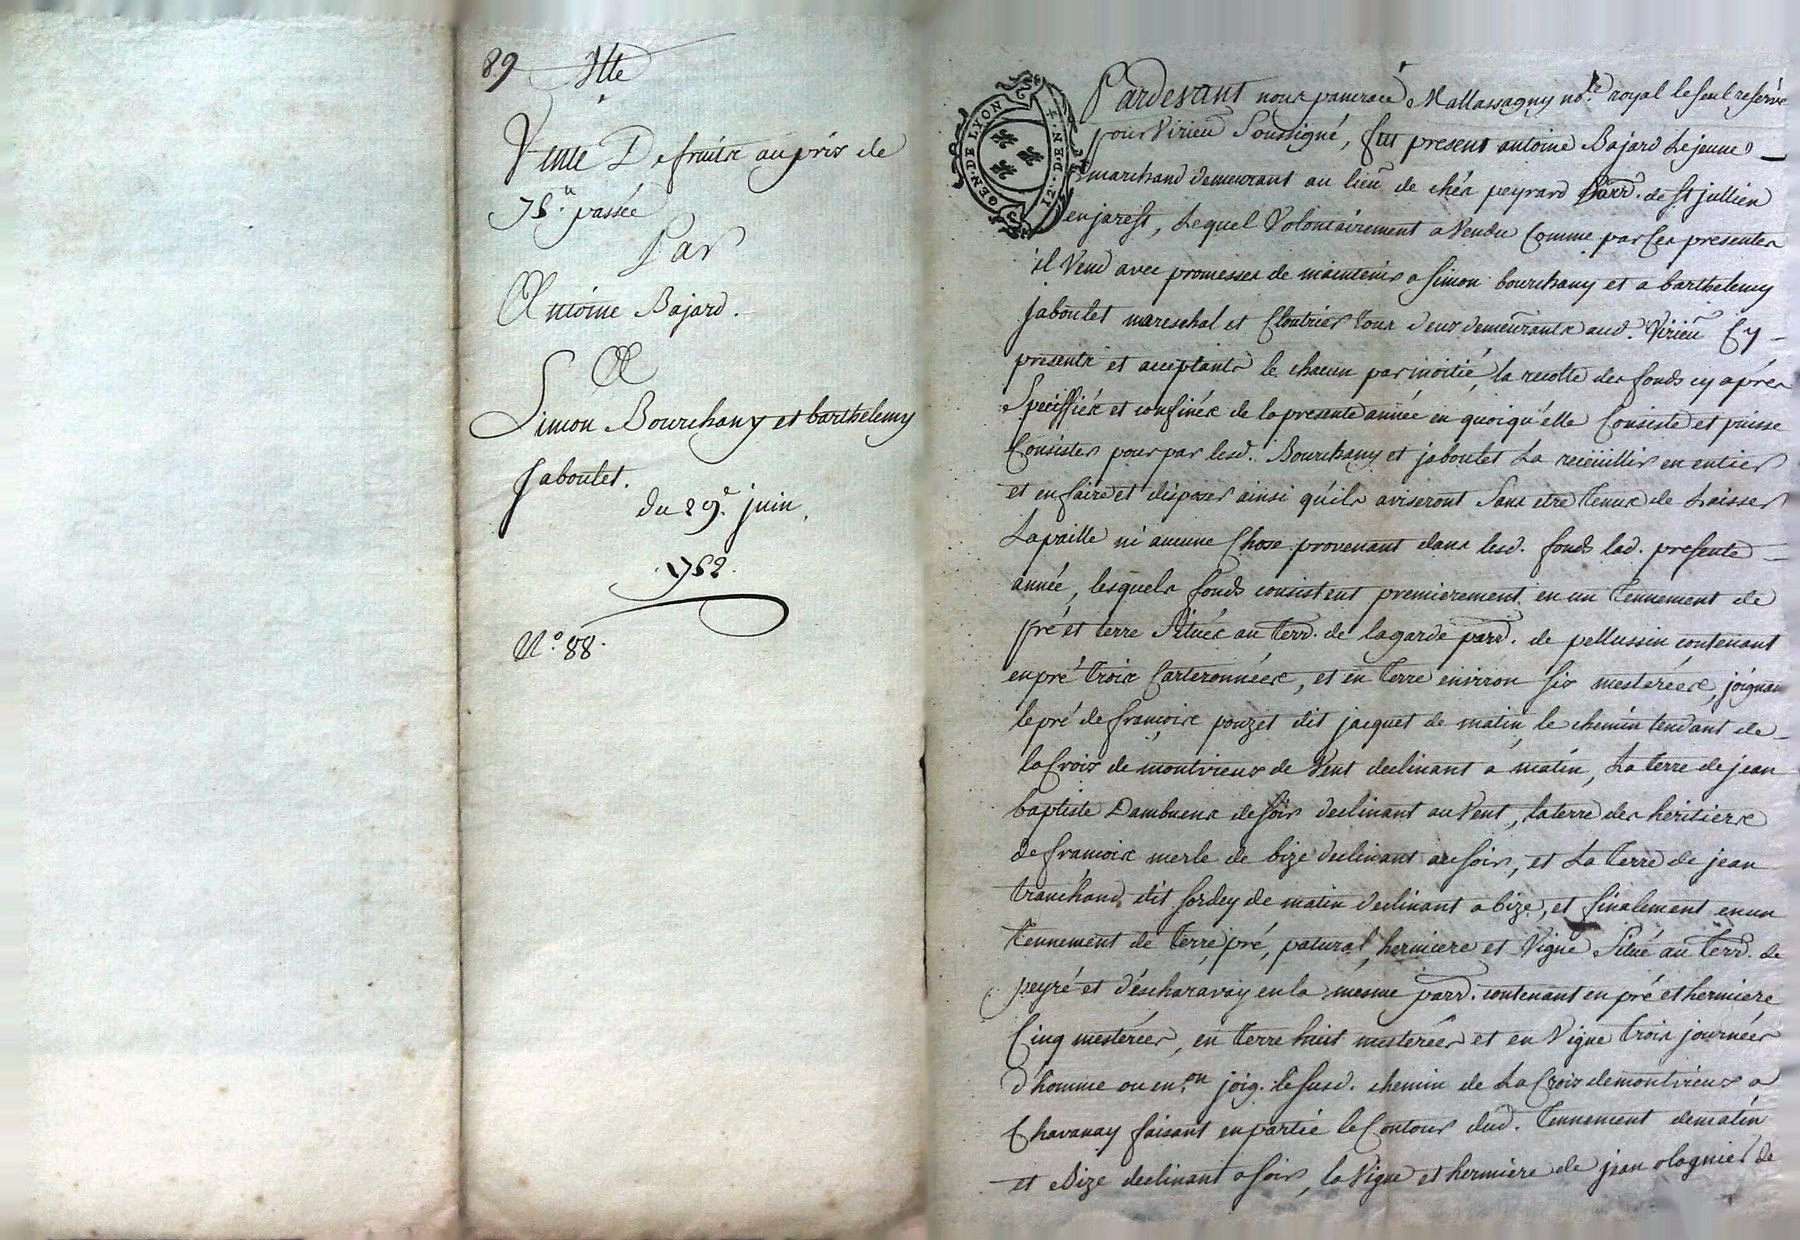 89
Vente De fruits au prix de
75.# passée
Par
Antoine Bajard.
A
Simon Bourchany et barthelemy
Jaboulet.
du 29.e juin,
.1752.
N.o 88.
GEN. DE LYON
1.2. DE. D. EN. 4.
Pardevant nous pancrace Mallassagny no.re royal le seul reservé
pour Virieu Soussigné, fut present antoine Bajard Le jeune
marchand demeurant au lieu de chés peyrard parr. de st jullien
en jarest, Lequel Volontairement a Vendu Comme par Ces presentes
il Vend avec promesses de maintenir a Simon bourchany et a barthelemy
jaboulet mareschal et Cloutrier tous deux demeurants aud. Virieu Cy
presents et acceptants le chacun par moitié, la recolte des fonds cy aprés
Speciffiés et confinés de la presente année en quoiqu'elle Consiste et puisse
Consister pour par lesd. Bourchany et jaboulet La recüeillir en entier
et en faire et disposer ainsi qu'ils aviseront Sans etre tenus de Laisser
La paille ni aucune Chose provenant dans lesd. fonds lad. presente
année, lesquels fonds consistent premierement en un tennement de
pré et terre Situés au terr. de lagarde parr. de pellussin contenant
en pré trois Carteronnées, et en terre environ six mesterées, joignant
le pré de françois pouzet dit jacquet de matin, le chemin tendant de
la Croix de montvieux de Vent declinant a matin, La terre de jean
baptiste Dambuens de soir declinant au Vent, la terre des heritiers
de francois merle de bize declinant au soir, et La terre de jean
tranchand dit sordey de matin declinant a bize, et finalement en un
tennement de terre, pré, patural, hermiere et Vigne Situé au terr. de
peyré et d'escharavay en la mesme parr. contenant en pré et hermiere
Cinq mesterées, en terre huit mesterées et en Vigne trois journées
d'homme ou en.on joig. le susd. chemin de La Croix de montvieux a
Chavanay faisant en partie le Contour dud. tennement de matin
et Bize declinant a soir, la Vigne et hermiere de jean olagnier de